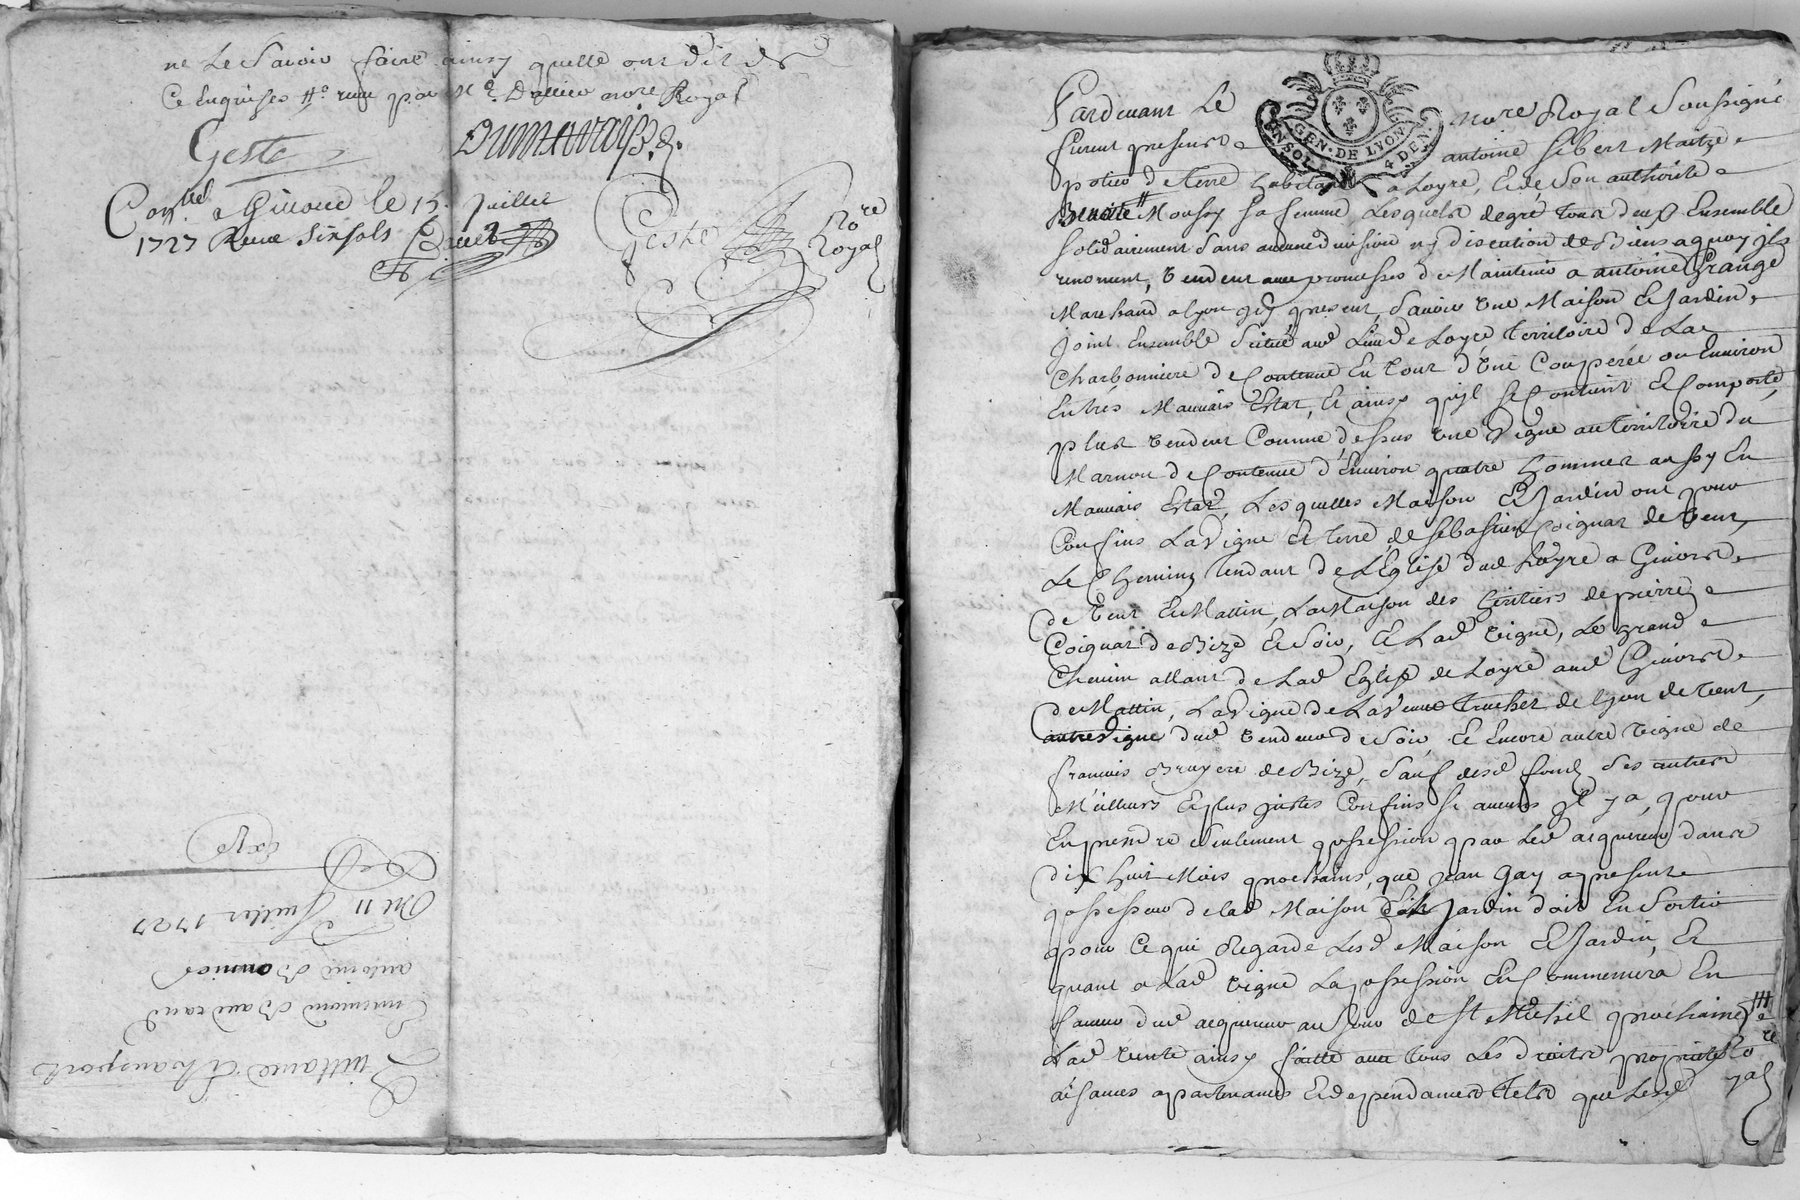 ne Le Savoir faire ainsy quelle ont dit de
Ce Enquises
Geste
Con.llé a Givord le 15 Juillet
1727 Receu six sols
Geste No.re Royal
Exp.é
Du 11 Juillet 1727
antoine Bonnier
Ennemond Baudrand
Quittance et transport
GEN. DE LYON
UN SOL 4 DEN.
Pardevant Le No.re Royal Soussigné
furent presents antoine Gibert Maitre
potier de terre habitant a Loyre, Et de Son authorité
Benoite Moussy sa femme Lesquels de gré tous deux Ensemble
solidairement sans aucune division ny discution de Biens a quoy ils
renoncent, vendent avec promesses de Maintenir a antoine Grange
Marchand a Lyon icy present, scavoir Une Maison Et Jardin
Joint Ensemble Scitué aud. Lieu de Loyre Territoire de La
Charbonniere de Contenue En tout d'Une Couperée ou Environ
En tres Mauvais Estat, Et ainsy qu'il se Contient Et Comporte,
plus vendent Comme dessus Une Vigne au Territoire du
Marnon de Contenue d'Environ quatre hommes aussy En
Mauvais Estat, Lesquelles Maison Et Jardin ont pour
Confins La Vigne Et terre de Sebastien Coignat de vent,
Le Chemin tendant de L'Eglise dud. Loyre a Givors
de vent Et Mattin, La Maison des heritiers de pierre
Coignat de Bize Et Soir, Et Lad. Vigne, Le grand
Chemin allant de Lad. Eglise de Loyre aud. Givors
de Mattin, La Vigne de La Veuve truchet de Lyon de vent,
autre Vigne dud. vendeur de Soir, Et Encore autre Vigne de
francois Bruyere de Bize, Sauf desd. fonds Ses autres
Meilleurs Et plus justes Confins si aucuns il y a, pour
En prendre seulement possession par Led. acquereur dans
dix huit Mois prochains, que Jean Gay a present
possesseur de lad. Maison Et Jardin doit En Sortir
pour Ce qui Regarde Lesd. Maison Et Jardin, Et
quant a Lad. Vigne La possession En Commencera En
faveur dud. acquereur au Jour de St Michel prochaine,
Lad. Vente ainsy faitte avec tous Les droits proprietés
aisances apartenances Et dependances tels que Lesd.